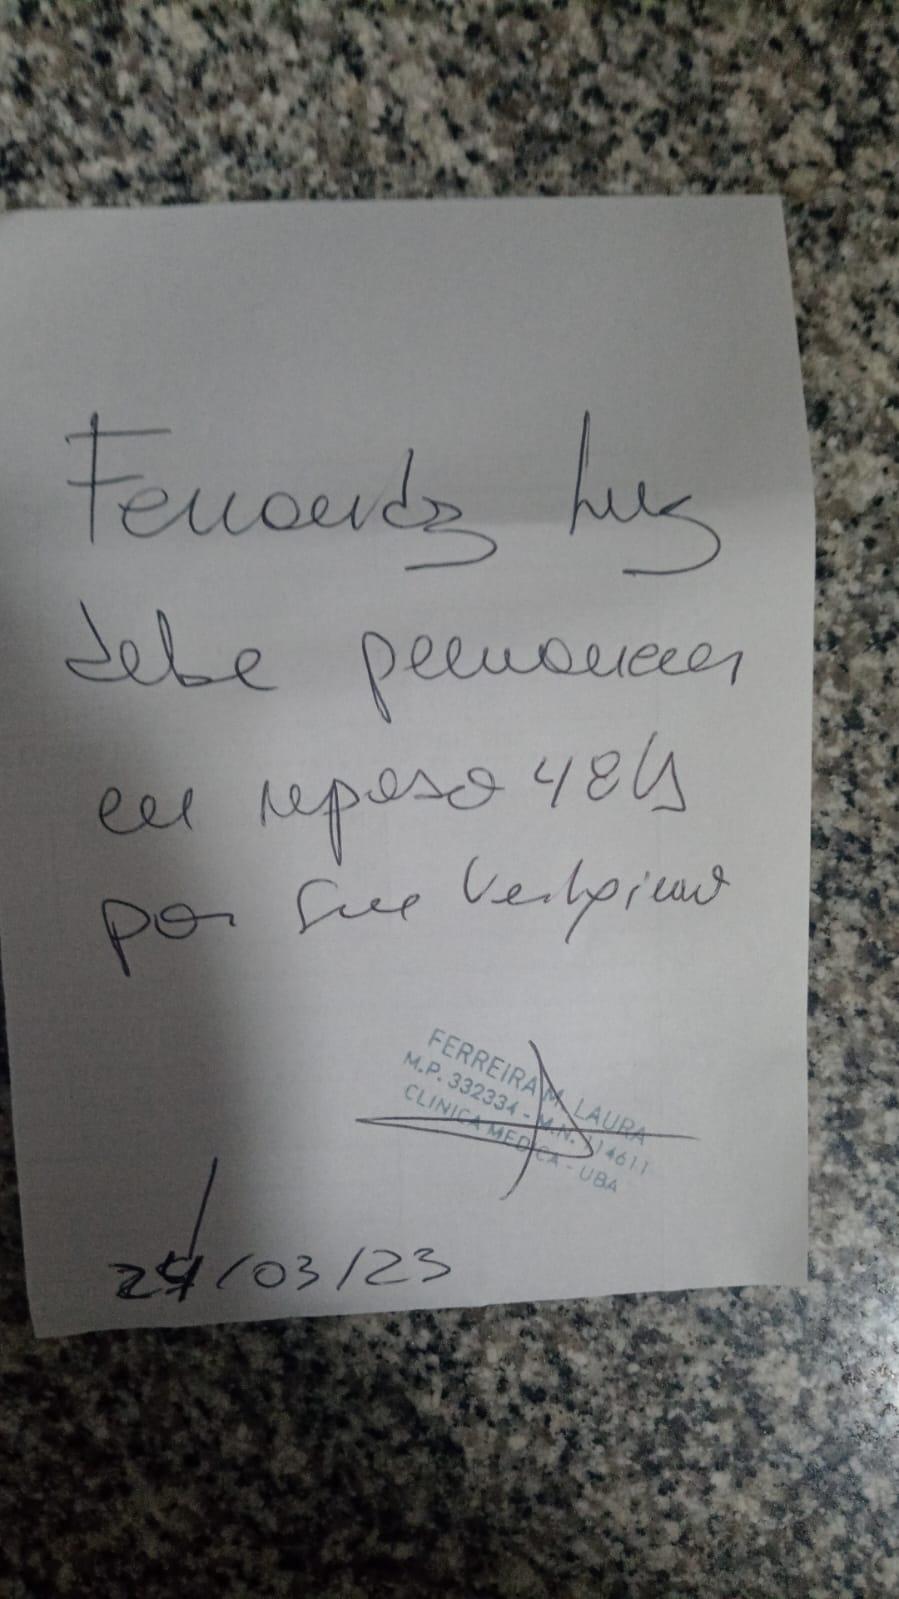 Fernandez Luz
debe permanecer
en reposo 48hs
por Sme Vertiginoso
FERREIRA M. LAURA
M.P. 332334 - M.N. 114611
CLINICA MEDICA - UBA
24/03/23